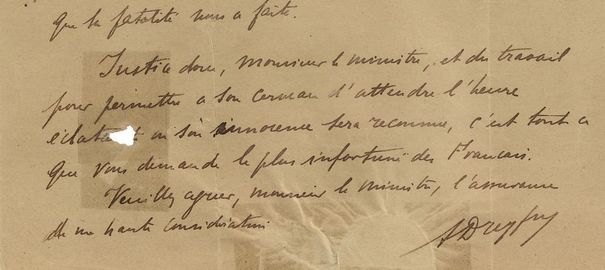 que la fatalité nous a faite.
Justice donc, monsieur le ministre, et du travail
pour permettre a son cerveau d'attendre l'heure
éclatante ou son innocence sera reconnue, c'est tout ce
que vous demande le plus infortuné des Francais.
Veuillez agréer, monsieur le ministre, l'assurance
de ma haute considération
A Dreyfus